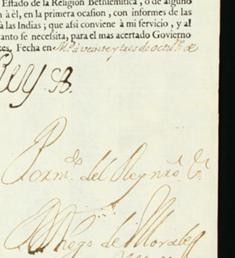 Estado de la Religion Bethlemitica, ò de alguno
à èl, en la primera ocasion, con informes de las
à las Indias; que asi conviene à mi servicio, y al
anto se necessita, para el mas acertado Govierno
Fecha en M.d à veinte y tres de octu.re de
Rey
Por m.do del Rey nro S.r
Diego de Morales